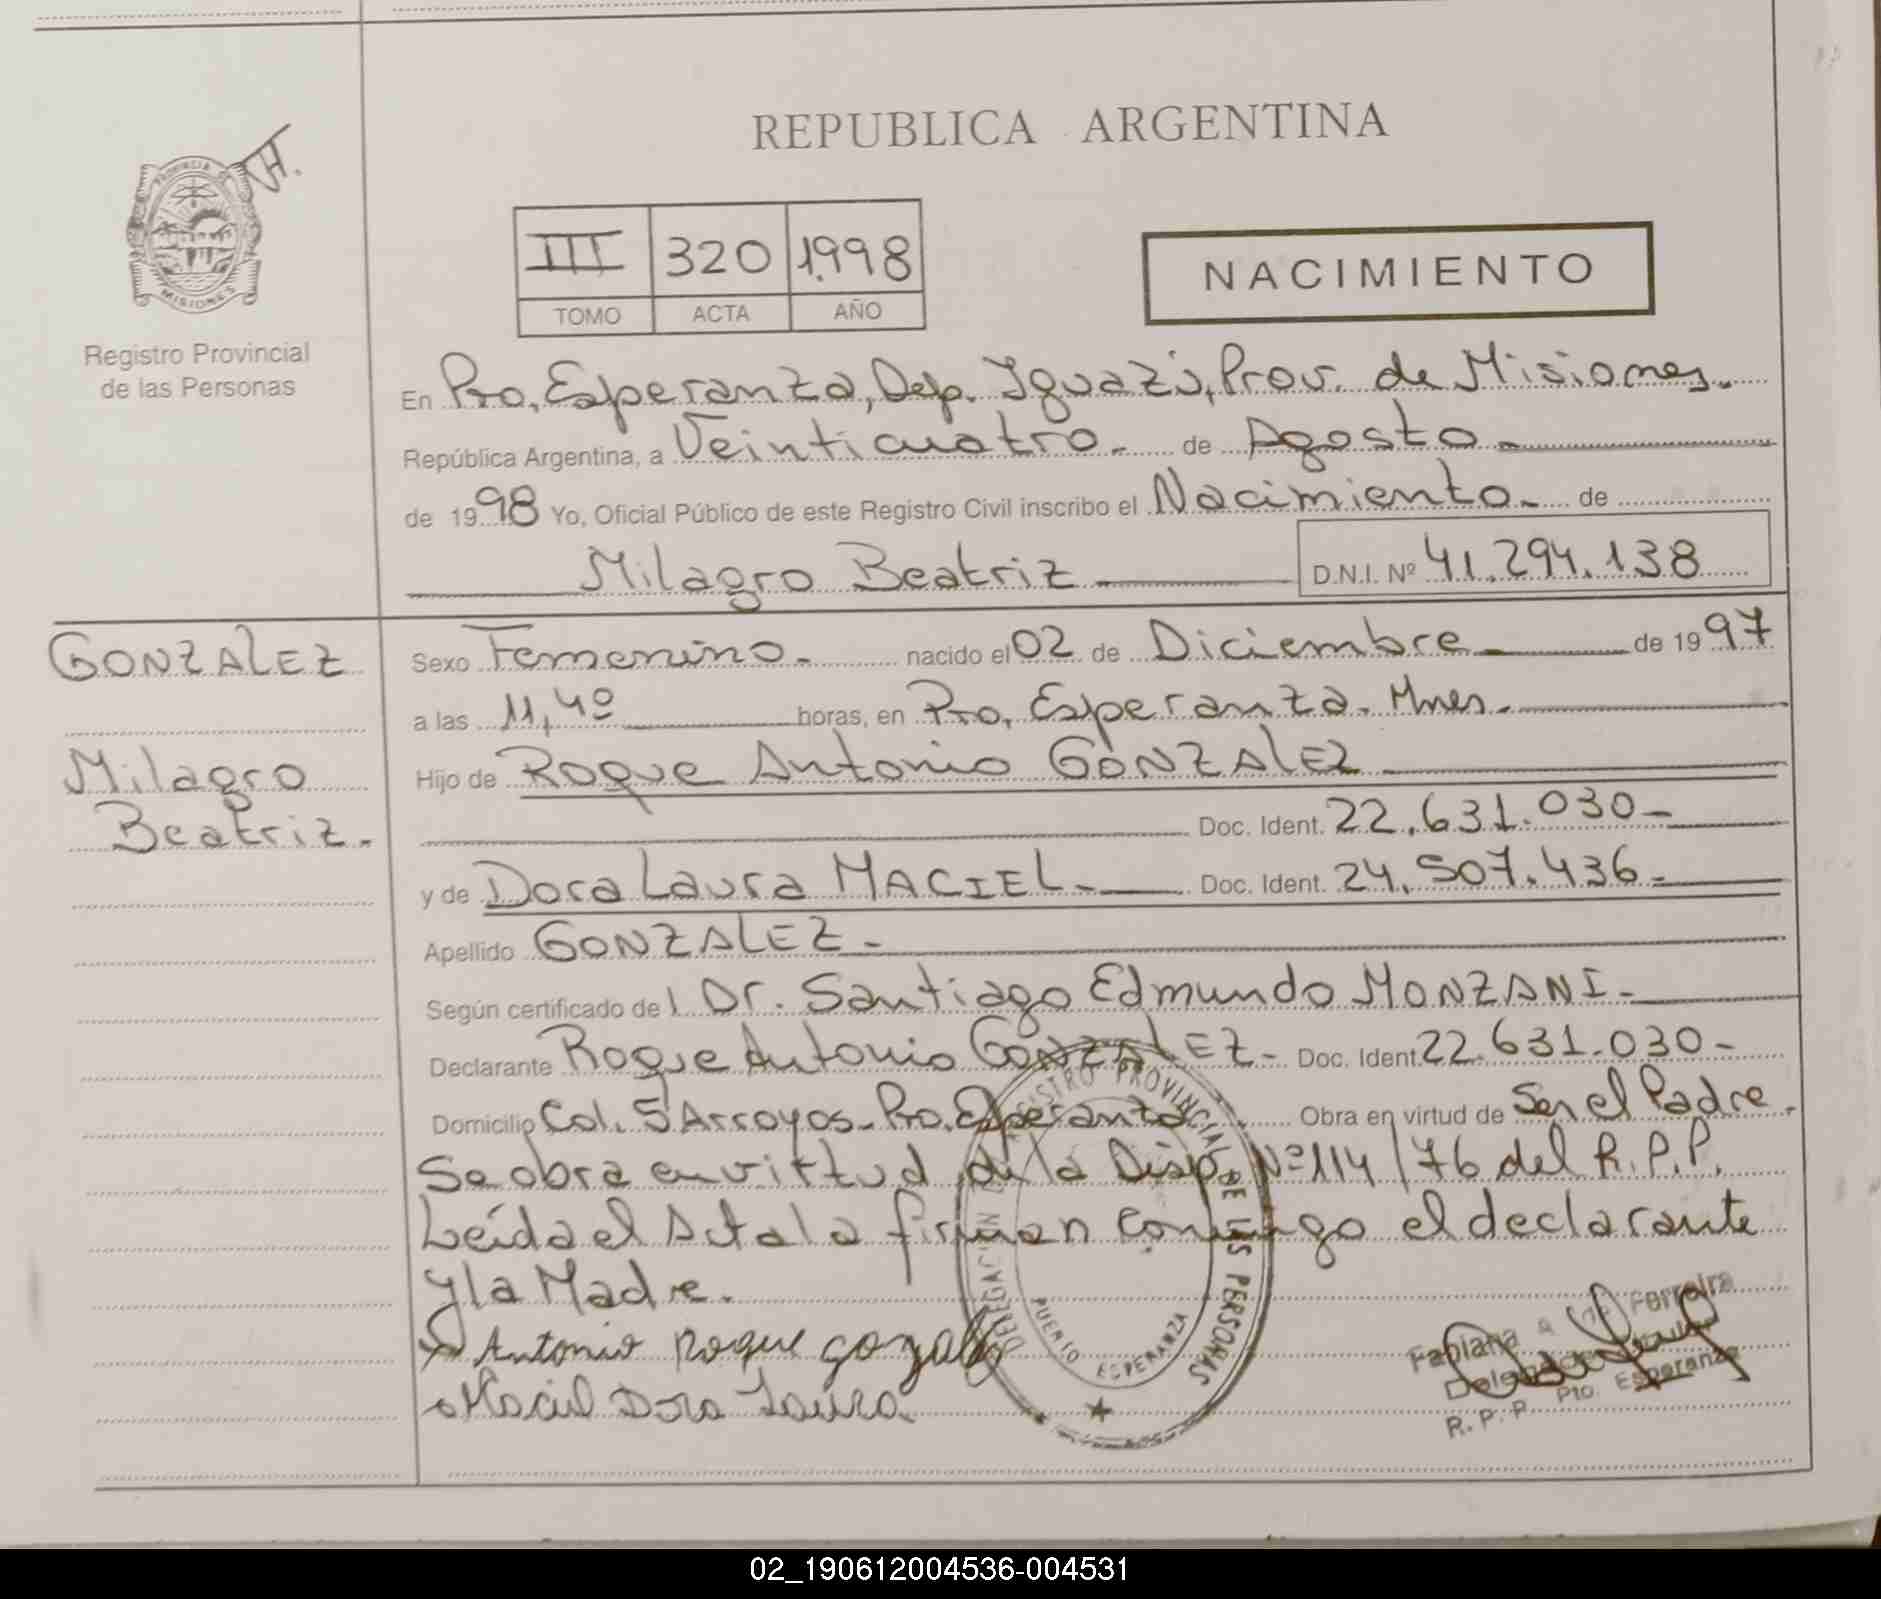 REPUBLICA ARGENTINA
PROVINCIA DE
MISIONES
Registro Provincial
de las Personas
III 320 1998
TOMO ACTA AÑO
NACIMIENTO
En Pto. Esperanza, Dep. Iguazú, Prov. de Misiones.
República Argentina, a Veinticuatro.- de Agosto -
de 1998 Yo, Oficial Público de este Registro Civil inscribo el Nacimiento.- de
Milagro Beatriz - D.N.I. Nº 41.294.138
GONZALEZ
Milagro
Beatriz.-
Sexo Femenino.- nacido el 02 de Diciembre - de 1997
a las 11,40 horas, en Pto. Esperanza. Mnes.-
Hijo de Roque Antonio GONZALEZ
Doc. Ident. 22.631.030-
y de Dora Laura MACIEL.- Doc. Ident. 24.507.436.-
Apellido GONZALEZ.-
Según certificado de l Dr. Santiago Edmundo MONZANI.-
Declarante Roque Antonio GONZALEZ.- Doc. Ident. 22.631.030-
Domicilio Col. 5 Arroyos- Pto. Esperanza Obra en virtud de Ser el Padre.
Se obra en virtud de la Disp. Nº 114/76 del R.P.P.
Leída el Acta la firman conmigo el declarante
y la Madre.
Antonio Roque gonzalez
Maciel Dora Laura
DELEGACION REGISTRO PROVINCIAL DE LAS PERSONAS
PUERTO ESPERANZA
Fabiana Ferreira
R.P.P. Pto. Esperanza
02_190612004536-004531